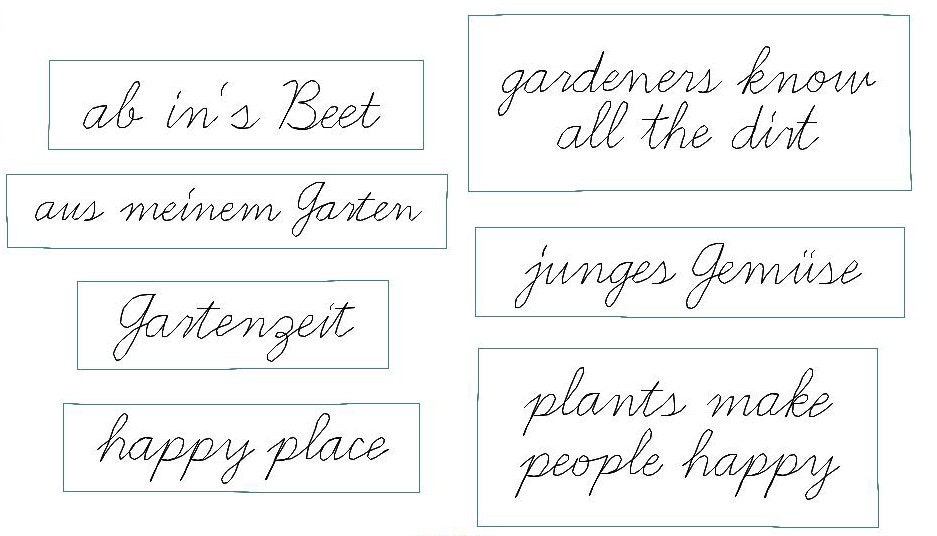 ab in's Beet
aus meinem Garten
Gartenzeit
happy place
gardeners know
all the dirt
junges Gemüse
plants make
people happy